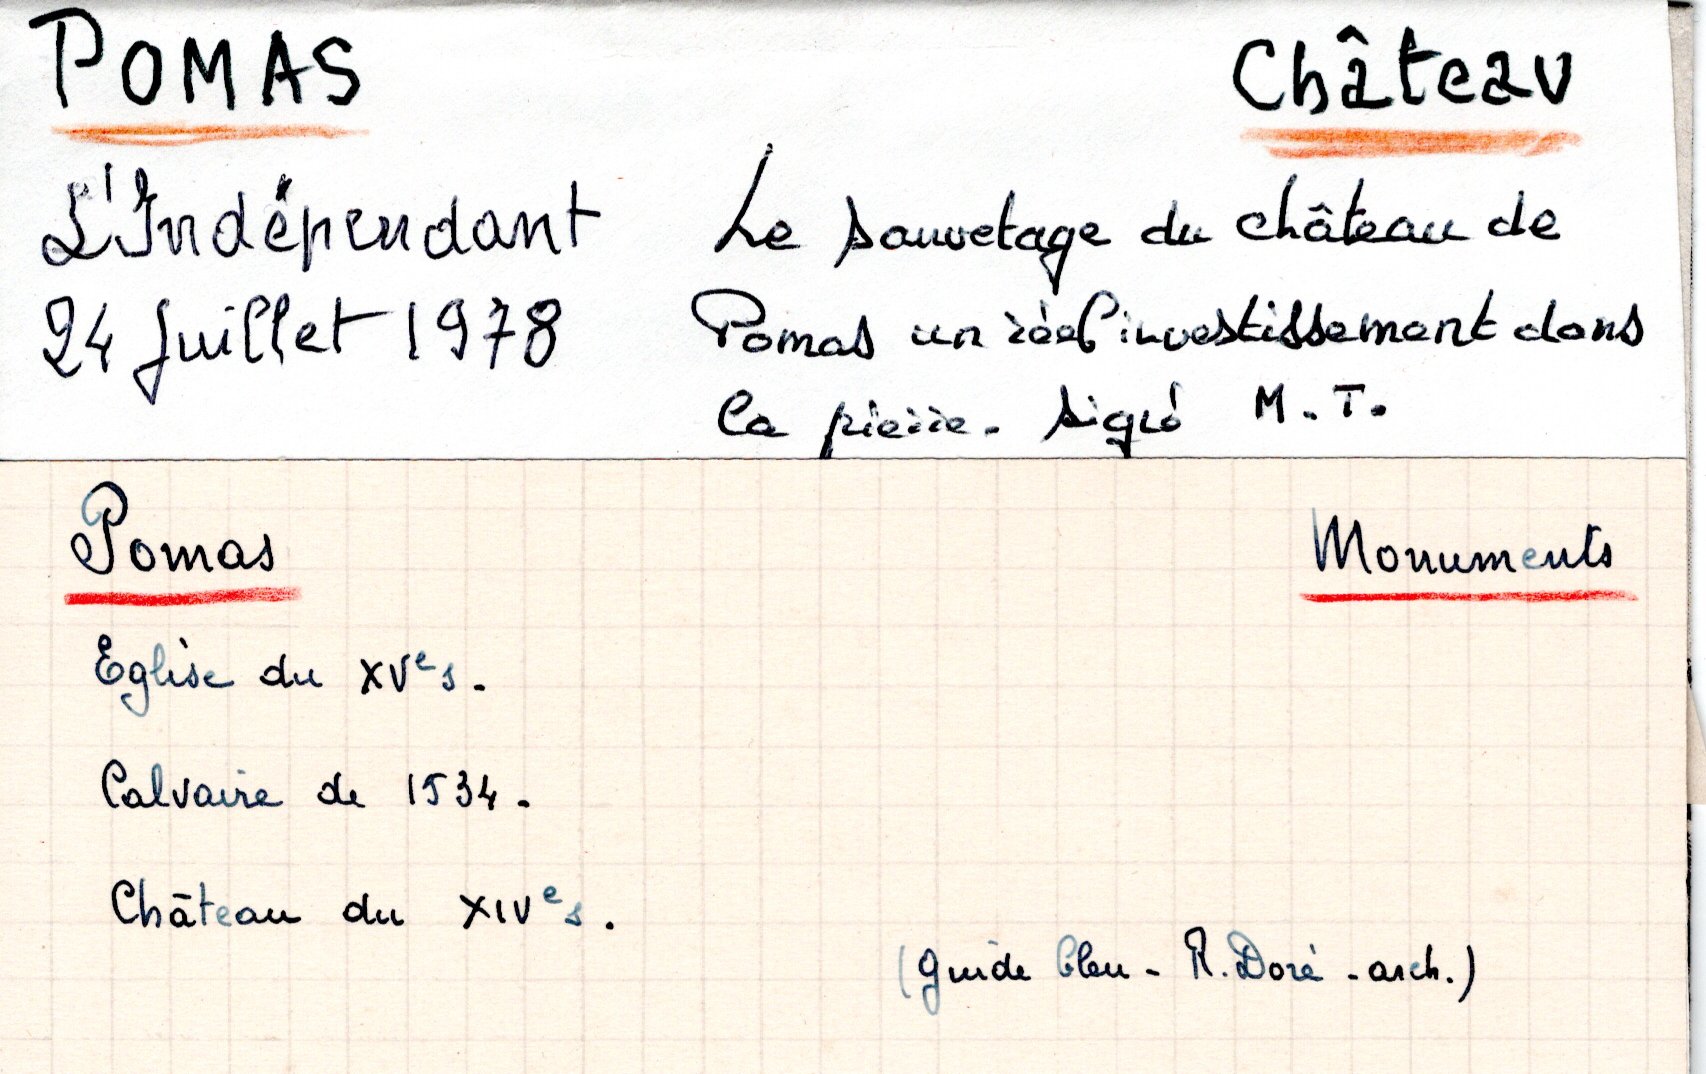 POMAS Château
L'Indépendant Le sauvetage du château de
24 Juillet 1978 Pomas un réel investissement dans
la pierre. Signé M.T.
Pomas Monuments
Eglise du XVe s.
Calvaire de 1534.
Château du XIVe s.
(Guide bleu - R. Doré - arch.)